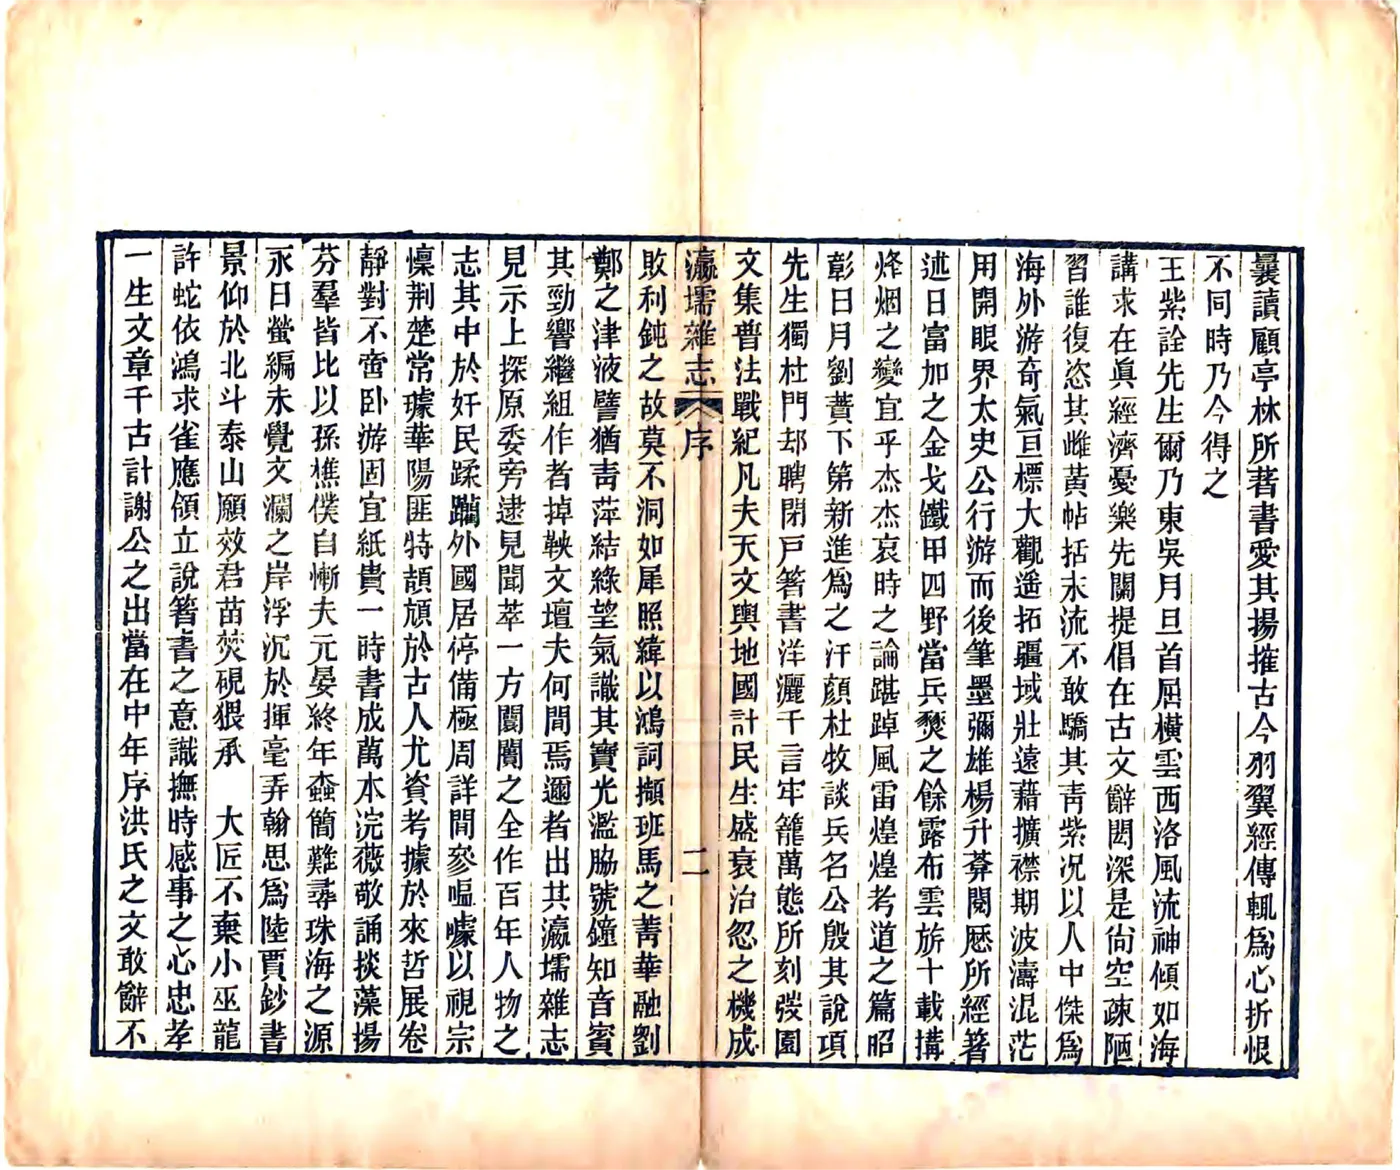 曩讀顧亭林所著書愛其揚搉古今羽翼經傳輒爲心折恨
不同時乃今得之
王紫詮先生爾乃東吳月旦首屈橫雲西洛風流神傾如海
講求在眞經濟憂樂先關提倡在古文辭閎深是尙空疎陋
習誰復恣其雌黃帖括末流不敢驕其靑紫况以人中傑爲
海外游奇氣亘標大觀遥拓疆域壯遠藉擴襟期波濤混茫
用開眼界太史公行游而後筆墨彌雄楊升菴閱歷所經著
述日富加之金戈鐵甲四野當兵燹之餘露布雲旂十載搆
烽烟之變宜乎杰杰哀時之論踸踔風雷煌煌考道之篇昭
彰日月劉蕡下第新進爲之汗顏杜牧談兵名公殷其說項
先生獨杜門却聘閉戶箸書洋灑千言牢籠萬態所刻弢園
文集普法戰紀凡夫天文輿地國計民生盛衰治忽之機成
瀛壖雜志 序 二
敗利鈍之故莫不洞如犀照緯以鴻詞擷班馬之菁華融劉
鄭之津液譬猶靑萍結綠望氣識其寶光濫脇號鐘知音賓
其勁響繼組作者掉鞅文壇夫何間焉邇者出其瀛壖雜志
見示上探原委旁逮見聞萃一方闤闠之全作百年人物之
志其中於奸民蹂躪外國居停備極周詳間參嘔噱以視宗
懍荆楚常璩華陽匪特頡頏於古人尤資考據於來哲展卷
靜對不啻卧游固宜紙貴一時書成萬本浣薇敬誦掞藻揚
芬羣皆比以孫樵僕自慚夫元晏終年蠧簡難尋珠海之源
永日螢編未覺文瀾之岸浮沉於揮毫弄翰思爲陸賈鈔書
景仰於北斗泰山願效君苗焚硯猥承　大匠不棄小巫龍
許蛇依鴻求雀應領立說箸書之意識撫時感事之心忠孝
一生文章千古計謝公之出當在中年序洪氏之文敢辭不